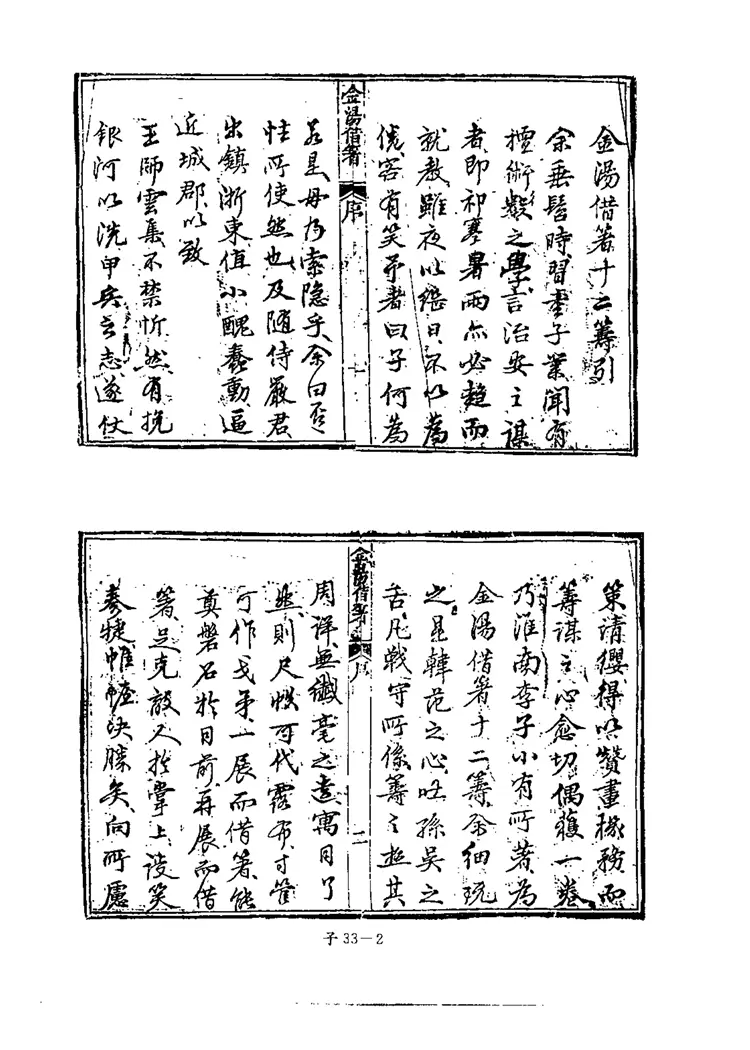 金湯借箸十二籌引
余垂髫時習舉子業聞有
擅術數之學言治安之謀
者即祁寒暑雨亦必趨而
就教雖夜以繼日不以為
倦客有笑予者曰子何為
金湯借箸
序
一
若是毋乃索隱乎余曰否
性所使然也及隨侍嚴君
出鎮浙東值小醜蠢動逼
近城郡以致
王師雲集不禁忻然有挽
銀河以洗甲兵之志遂仗
策請纓得以贊畫掾務而
籌謀之心愈切偶獲一卷
乃淮南李子小有所著為
金湯借箸十二籌余細玩
之是韓范之心吐孫吳之
舌凡戰守所係籌之極其
金湯借箸
序
二
周詳無纖毫之遺寓目了
然則尺幅可代露布寸管
可作戈矛一展而借箸能
奠磐石於目前再展而借
箸足克敵人於掌上談笑
奏捷帷幄決勝矣向所慮
子33-2